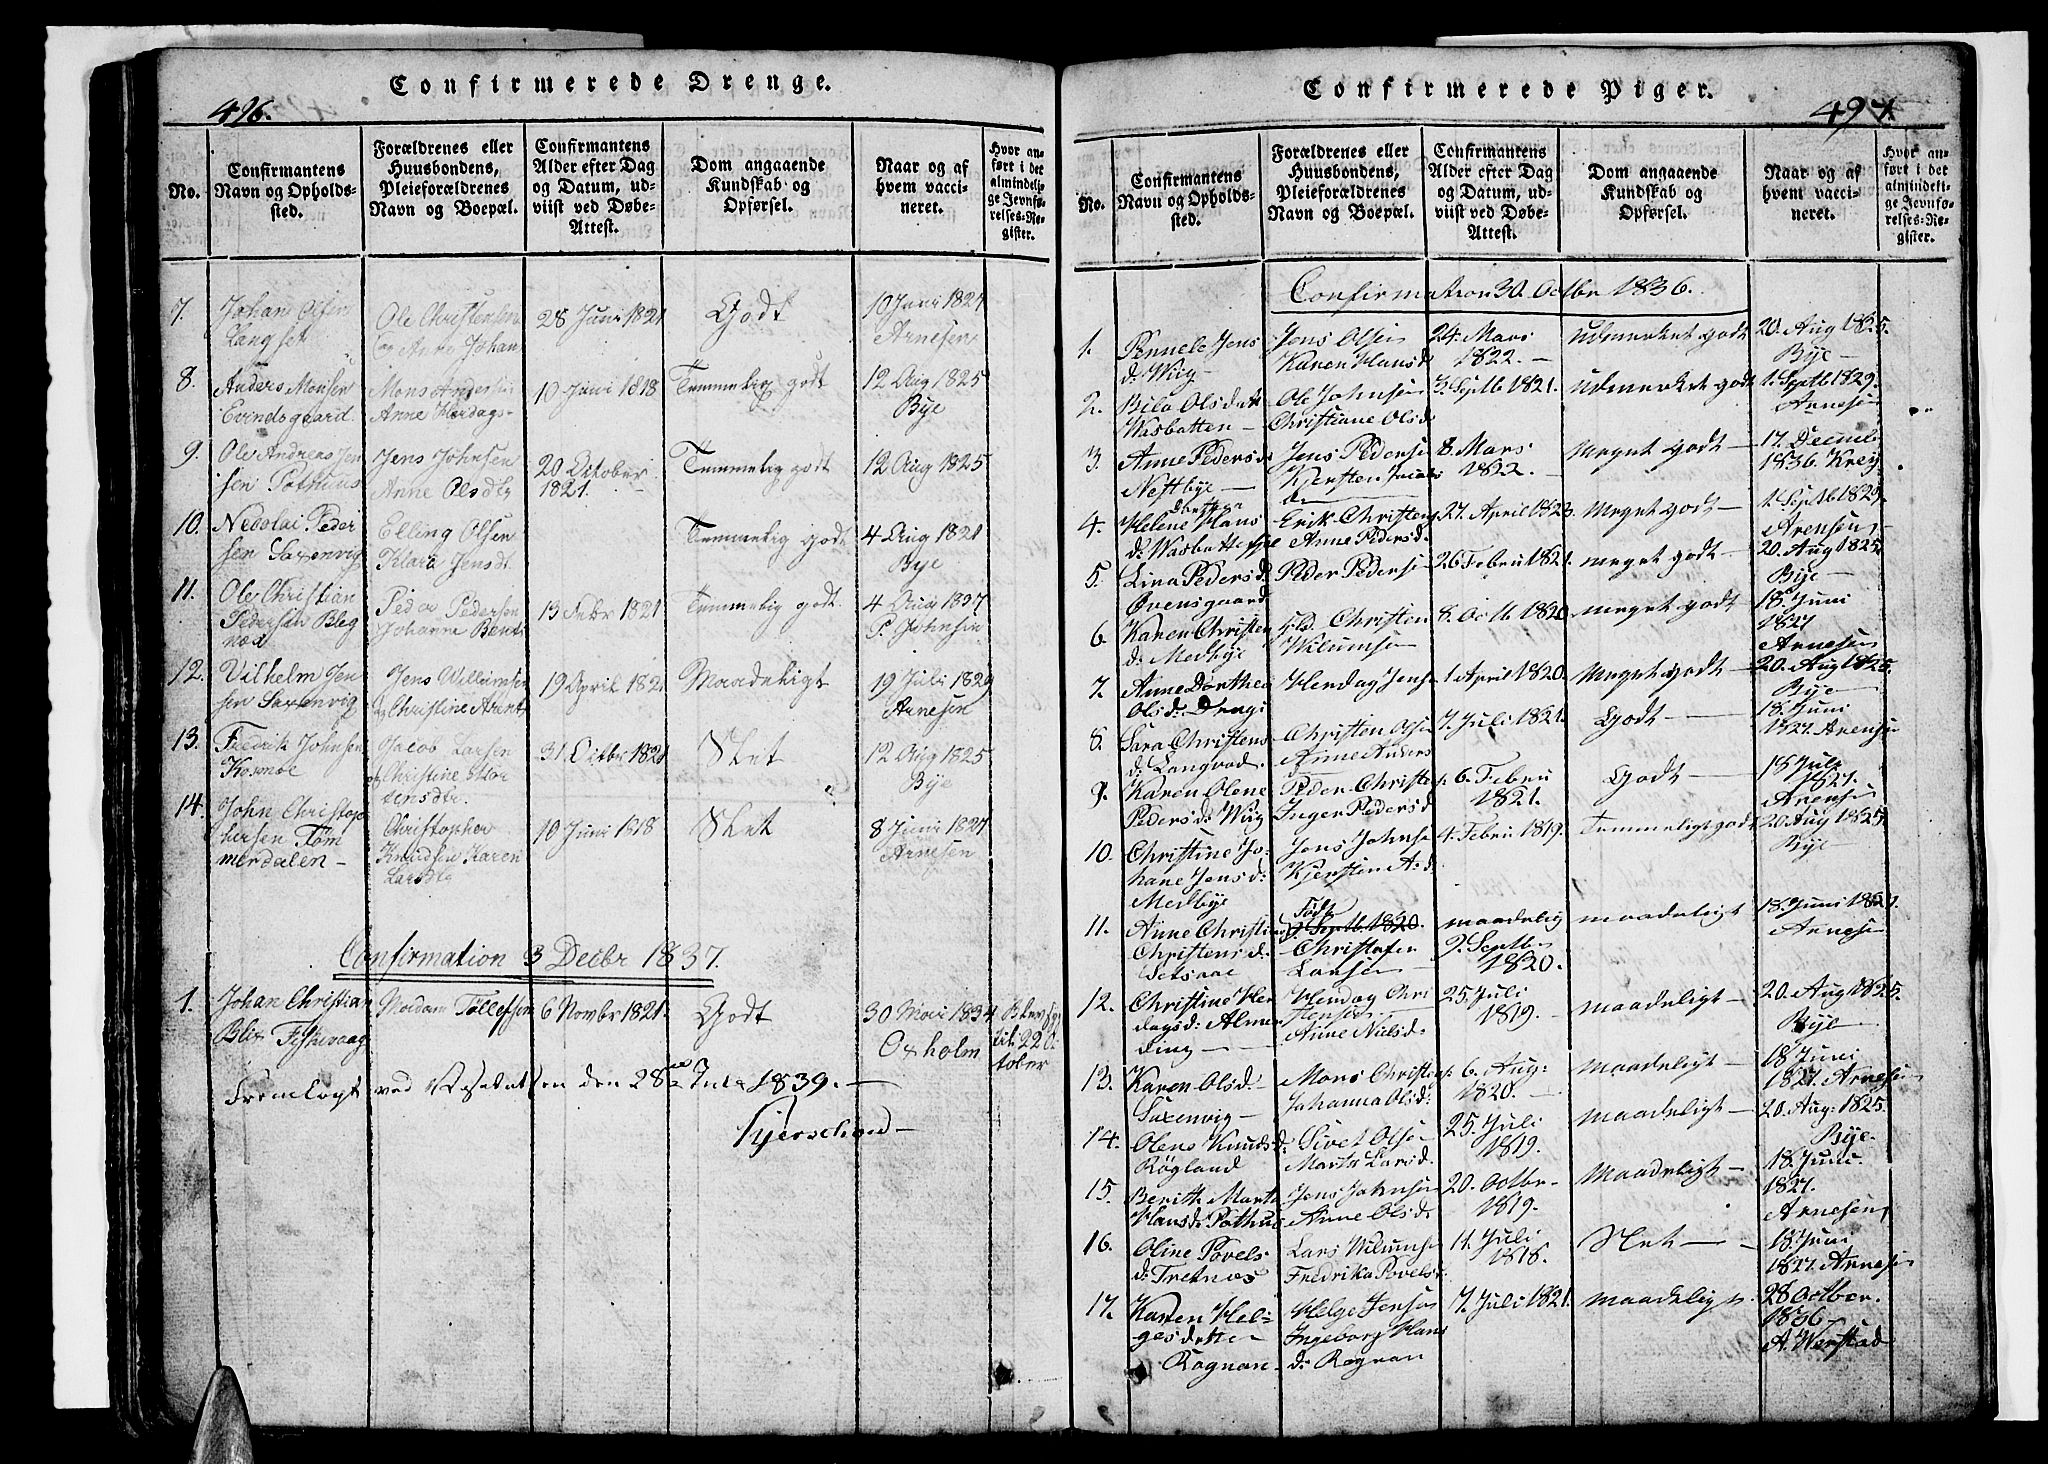 Confirmerede Drenge.
496.
No.
Confirmantens Navn og Opholdssted.
Forældrenes eller Huusbondens, Pleieforældrenes Navn og Boepæl.
Confirmantens Alder efter Dag og Datum, udviist ved Døbe-Attest.
Dom angaaende Kundskab og Opførsel.
Naar og af hvem vaccineret.
Hvor anført i det almindelige Jevnførelses-Register.
7. Johan Olsen Ole Christensen 28 Juni 1821 Godt 10 Juni 1827
Langset Johan Arnesen
8. Anders Monsen Mons Andersen 10 Juni 1818 Temmelig godt 12 Aug 1825
Evindsgaard Anne Hordags Bye
9. Ole Andreas Jen Jens Johnsen 20 October Temmelig godt 12 Aug 1825
sen Pothuus Anne Olsdtr 1821.
10. Nicolai Peder Elling Olsen Temmelig godt 4 Aug 1821
sen Saxenvig Klara Jensdt Bye
11. Ole Christian Peder Pedersen 13 Febr 1821 Temmelig godt. 4 Aug 1837
Pedersen Johanna Bents P. Johnsen
12. Vilhelm Jen Jens Willumsen 19 April 1821 Maadeligt 19 Juli 1829
sen Saxenvig Christine Arnts Arnesen
13. Fredrik Johnsen Jacob Larsen 31 Octbr 1821 Slet 12 Aug 1825
Kosmoe Christine Mor Bye
tensdtr.
14. John Christop Christopher 10 Juni 1818 Slet 8 Juni 1827
hersen Tøm Knudsen Karen Arnesen
merdalen – Larsdtr
Confirmation 3 Decbr 1837.
1. Johan Christian Madam Tollefsen 6 Novbr 1821. Godt 30 Mai 1834
Blix Fiskevaag Oxholm
Fremlagt ved Visitatsen den 28 1839. –
Confirmerede Piger.
497
No.
Confirmantens Navn og Opholdssted.
Forældrenes eller Huusbondens, Pleieforældrenes Navn og Boepæl.
Confirmantens Alder efter Dag og Datum, udviist ved Døbe-Attest.
Dom angaaende Kundskab og Opførsel.
Naar og af hvem vaccineret.
Hvor anført i det almindelige Jevnførelses-Register.
Confirmation 30. Octbr 1836.
1. Pernele Jens Jens Olsen 24. Mars udmerket godt 20. Aug 1825.
d: Karen Hansd 1822. – Bye –
2. Ole Johnsen 3. Septb 1821. udmerket godt 1. Septb 1829.
Christiane Olsd Arnesen
3. Anne Pedersd Jens Pedersen 8. Mars Meget godt – 17. Decmb
Nestbye – Kjersten 1822 – 1836.
4. Helene Hans Erik Christens 27. April 1823. Meget godt – 1. Septb 1829.
d: Anne Pedersd. Arensen
5. Lina Pedersd. Peder Pedersen 26 Febru 1821. meget godt – 20. Aug 1825.
Øvensgaard Bye –
6. Karen Christen Christen 8. Octb 1820 meget godt 18. Juni
d: Medbye Wilumsen 1827 Arnesen
7. Anne Dorthea Herdag Jens 1 April 1820. Meget godt – 20. Aug 1825.
Olsd: Bye –
8. Sara Christens Christen Olsen 7. Juli 1821. Godt – 18. Juni
d: Langvad. Anne Anders 1827. Arensen
9. Karen Olene Peder Christen 6. Febru Godt – 18 Juli
Pedersd: Inger Pedersd 1821. 1827. Arensen
10. Christine Jo- Jens Johnsen 4. Febru 1819. Temmeligt godt 20. Aug 1825.
hane Jensd: Kjersten A:d: Bye
Medbye
11. Anne Christin Født maadelig maadeligt 18. Juni 1827.
Christensd: Christofer 9. Septbr Arnesen
Setsaae Larsen – 1820.
12. Christine Her Herdag Chri 25. Juli maadeligt – 20. Aug 1825.
dagsd: Almen stensen 1819. – Bye –
ding – Anne Nielsd:
13. Karen Olsd – Mons Christen 6. Aug: maadeligt – 18 Juni
Saxenvig – Johanna Olsd: 1820. – 1827. Arnesen
14. Olene Knudsd: Sivert Olsen 25. Juli maadeligt – 20. Aug: 1825.
Røgland Marte Larsd. 1819. Bye.
15. Berith Marta Jens Johnsen 20. Octbr – Maadeligt – 18. Juni.
Hansd: Pothuus Anne Olsd: 1819. – 1827. Arnesen
16. Oline Povels Lars Wilumsen 11. Juli Slet – 18. Juni
d: Tretnæs Fredrika Povelsd: 1818. 1827. Arnesen
17. Karen Hel- Helge Jenson 7. Juli 1821. maadeligt. 28 October.
gesdatter Ingeborg Hans 1836
Rognan – d: Rognan A. Werstad